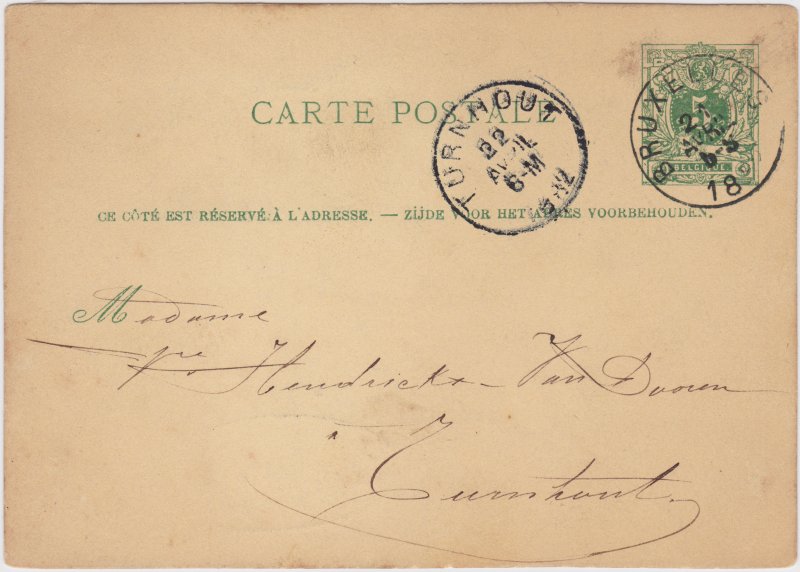 CARTE POSTALE
5
BELGIQUE
BRUXELLES
21
18
TURNHOUT
22
AVRIL
8-M
CE CÔTÉ EST RÉSERVÉ À L'ADRESSE. — ZIJDE VOOR HET ADRES VOORBEHOUDEN.
Madame
Hendrickx-Van Dooren
à
Turnhout.